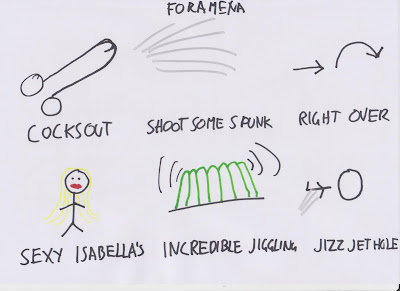 FORAMENA
COCKSOUT
SHOOT SOME SPUNK
RIGHT OVER
SEXY ISABELLA'S
INCREDIBLE JIGGLING
JIZZ JET HOLE